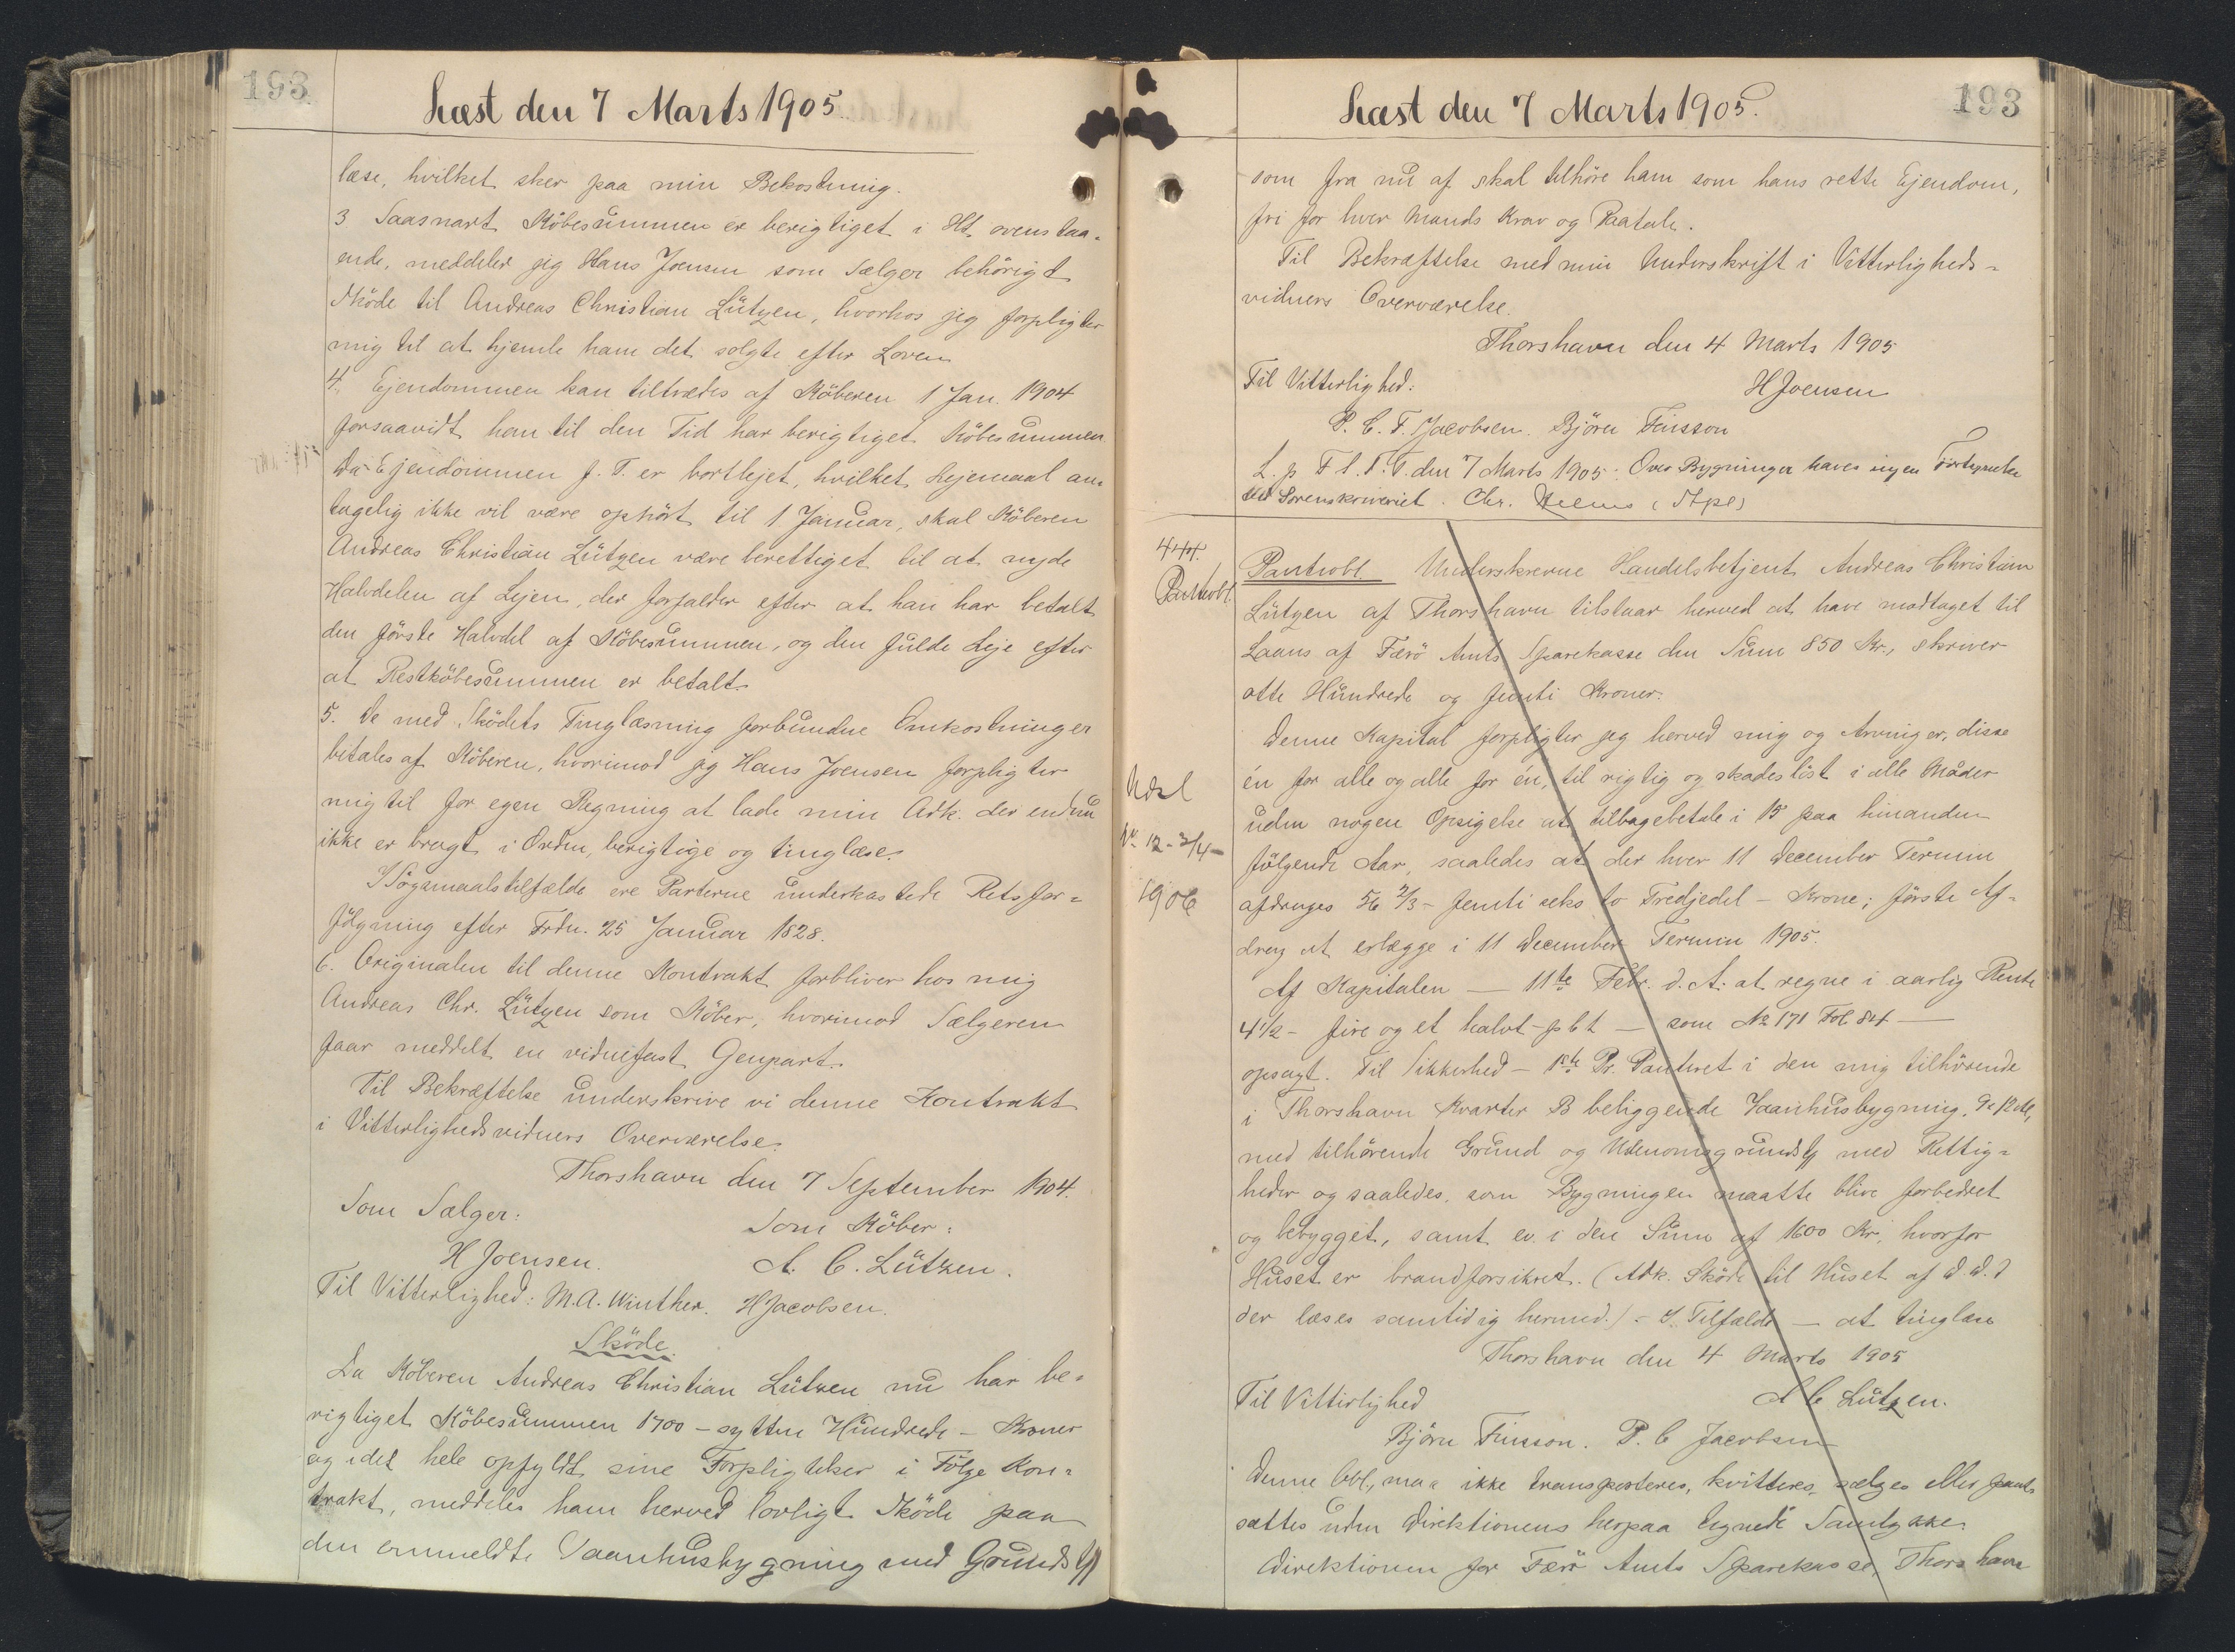 193
Læst den 7 Marts 1905.
læse, hvilket sker paa min Bekostning.
3 Saasnart Köbesummen er berigtiget i Ht. ovenstaa-
ende, meddeler jeg Hans Joensen som Sælger behörigt
Sköde til Andreas Christian Lützen, hvorhos jeg forpligter
mig til at hjemle ham det solgte efter Loven
4. Ejendommen kan tiltrædes af Köberen 1 Jan. 1904
forsaavidt han til den Tid har berigtiget Köbesummen.
Da Ejendommen f. T. er bortlejet, hvilket Lejemaal an-
tagelig ikke vil være ophört til 1 Januar, skal Köberen
Andreas Christian Lützen være berettiget til at nyde
Halvdelen af Lejen, der forfalder efter at han har betalt
den förste Halvdel af Köbesummen, og den fulde Leje efter
at Restköbesummen er betalt.
5. De med Sködets Tinglæsning forbundne Omkostninger
betales af Köberen, hvorimod jeg Hans Joensen forpligter
mig til for egen Regning at lade min Adk. der endnu
ikke er bragt i Orden, berigtige og tinglæse.
I Sögsmaalstilfælde ere Parterne underkastede Retsfor-
fölgning efter Frdn. 25 Januar 1828.
6. Originalen til denne Kontrakt forbliver hos mig
Andreas Chr. Lützen som Köber, hvorimod Sælgeren
faar meddelt en vidnefast Genpart.
Til Bekræftelse underskrive vi denne Kontrakt
i Vitterlighedsvidners Overværelse.
Thorshavn den 7 September 1904.
Som Sælger: Som Köber:
H Joensen. A. C. Lützen.
Til Vitterlighed: M.A. Winther. H Jacobsen.
Sköde.
Da Köberen Andreas Christian Lützen nu har be-
rigtiget Köbesummen 1700 - sytten Hundrede - Kroner
og i det hele opfyldt sine Forpligtelser i Fölge Kon-
trakt, meddeles ham herved lovligt Sköde paa
den ommeldte Vaanhusbygning med Grundst.
193
Læst den 7 Marts 1905.
som fra nu af skal tilhöre ham som hans rette Ejendom,
fri for hver Mands Krav og Paatale.
Til Bekræftelse med min Underskrift i Vitterligheds-
vidners Overværelse.
Thorshavn den 4 Marts 1905
Til Vitterlighed: H Joensen
P. C. F. Jacobsen. Björn Finsson
L. p F l. T. T. den 7 Marts 1905. Over Bygninger haves ingen Fortegnelse
ved Sorenskriveriet. Chr. (Stpl)
444.
Pantobl.
Pantobl Underskrevne Handelsbetjent Andreas Christian
Lützen af Thorshavn tilstaar herved at have modtaget til
Laans af Færö Amts Sparekasse den Sum 850 Kr., skriver
otte Hundrede og femti Kroner.
Denne Kapital forpligter jeg herved mig og Arvinger, disse
én for alle og alle for én, til rigtig og skadeslöst i alle Måder
uden nogen Opsigelse at tilbagebetale i 15 paa hinanden
fölgende Aar, saaledes at der hver 11 December Termin
afdrages 56 2/3 - femti seks to Tredjedel - Krone; förste Af-
drag at erlægge i 11 December Termin 1905.
Udsl
Nr 12 - 3/4 -
1906
Af Kapitalen — 11te Febr. d. A. at regne i aarlig Rente
4 1/2 - fire og et halvt - pCt — som No 171 Fol 84 —
opsagt. Til Sikkerhed - 1ste Pr. Panteret i den mig tilhörende
i Thorshavn Kvarter B beliggende Vaanhusbygning,
med tilhörende Grund og Udenomsgrundst med Rettig-
heder og saaledes, som Bygningen maatte blive forbedret
og bebygget, samt ev. i den Sum af 1600 Kr, hvorfor
Huset er brandforsikret. (Adk. Sköde til Huset af D. D.
der læses samtidig hermed.) - I Tilfælde — at tinglæse
Thorshavn den 4 Marts 1905
Til Vitterlighed A C Lützen.
Björn Finsson. P. C Jacobsen
Denne Obl. maa ikke transporteres, kvitteres, sælges eller pant-
sættes uden Direktionens herpaa tegnede Samtykke.
Direktionen for Færö Amts Sparekasse, Thorshavn